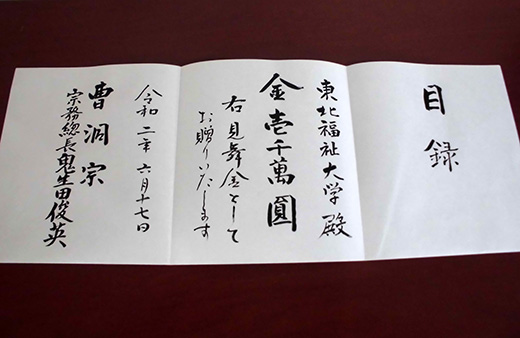 目録
東北福祉大学 殿
金壱千萬圓
右見舞金として
お贈りいたします
令和二年六月十七日
曹洞宗
宗務總長鬼生田俊英